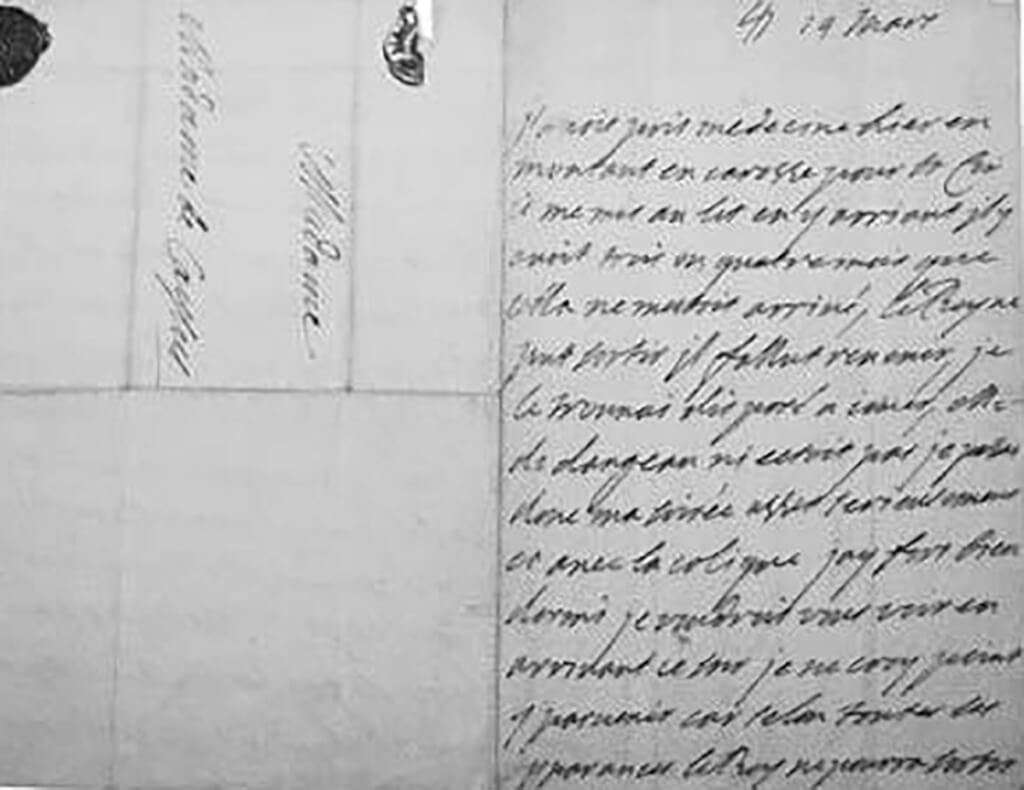 Madame
Madame de Caylus
19 mars
J'avois pris medecine hier en
montant en carosse pour St Cir
je me mis au lit en y arrivant il y
avoit trois ou quatre mois que
cella ne m'estoit arrivé, le Roy ne
put sortir il fallut revenir, je
le trouvai disposé a jouer, Me
de dangeau ni estoit pas je passai
donc ma soirée assez serieusement
et avec la colique j'ay fort bien
dormi je voudrois vous voir en
arrivant ce soir je ne croy point
y parvenir car selon toutes les
apparances le Roy ne pourra sortir